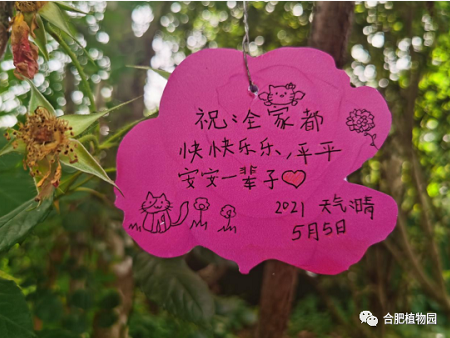 祝：全家都
快快乐乐、平平
安安一辈子
2021 天气：晴
5月5日
合肥植物园